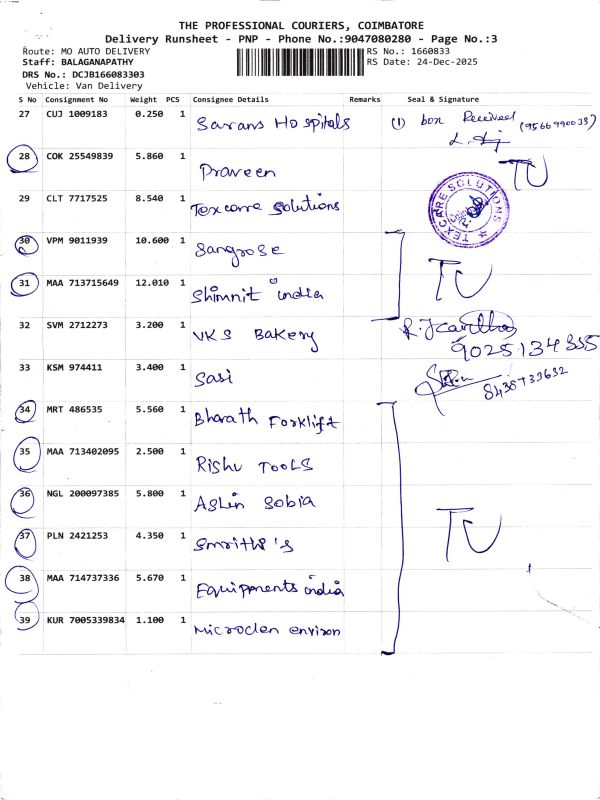 THE PROFESSIONAL COURIERS, COIMBATORE
Delivery Runsheet - PNP - Phone No.:9047080280 - Page No.:3
Route: MO AUTO DELIVERY RS No.: 1660833
Staff: BALAGANAPATHY RS Date: 24-Dec-2025
DRS No.: DCJB166083303
Vehicle: Van Delivery
S No Consignment No Weight PCS Consignee Details Remarks Seal & Signature
27 CUJ 1009183 0.250 1 Sarans Hospitals (1) box Received (9566990033)
28 COK 25549839 5.860 1 Praveen TU
29 CLT 7717525 8.540 1 Texcare Solutions TEXCARE SOLUTIONS
30 VPM 9011939 10.600 1 Sangrose
31 MAA 713715649 12.010 1 Shimnit india TU
32 SVM 2712273 3.200 1 VKS Bakery 9025134355
33 KSM 974411 3.400 1 Sasi 8438733632
34 MRT 486535 5.560 1 Bharath Forklift
35 MAA 713402095 2.500 1 Rishu TOOLS
36 NGL 200097385 5.800 1 Aslin Sobia
37 PLN 2421253 4.350 1 Smrithi's TU
38 MAA 714737336 5.670 1 Equipments india
39 KUR 7005339834 1.100 1 Microclen environ